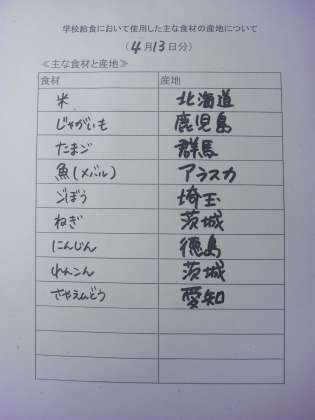 学校給食において使用した主な食材の産地について
(4月13日分)
≪主な食材と産地≫
食材 産地
米 北海道
じゃがいも 鹿児島
たまご 群馬
魚(メバル) アラスカ
ごぼう 埼玉
ねぎ 茨城
にんじん 徳島
れんこん 茨城
さやえんどう 愛知